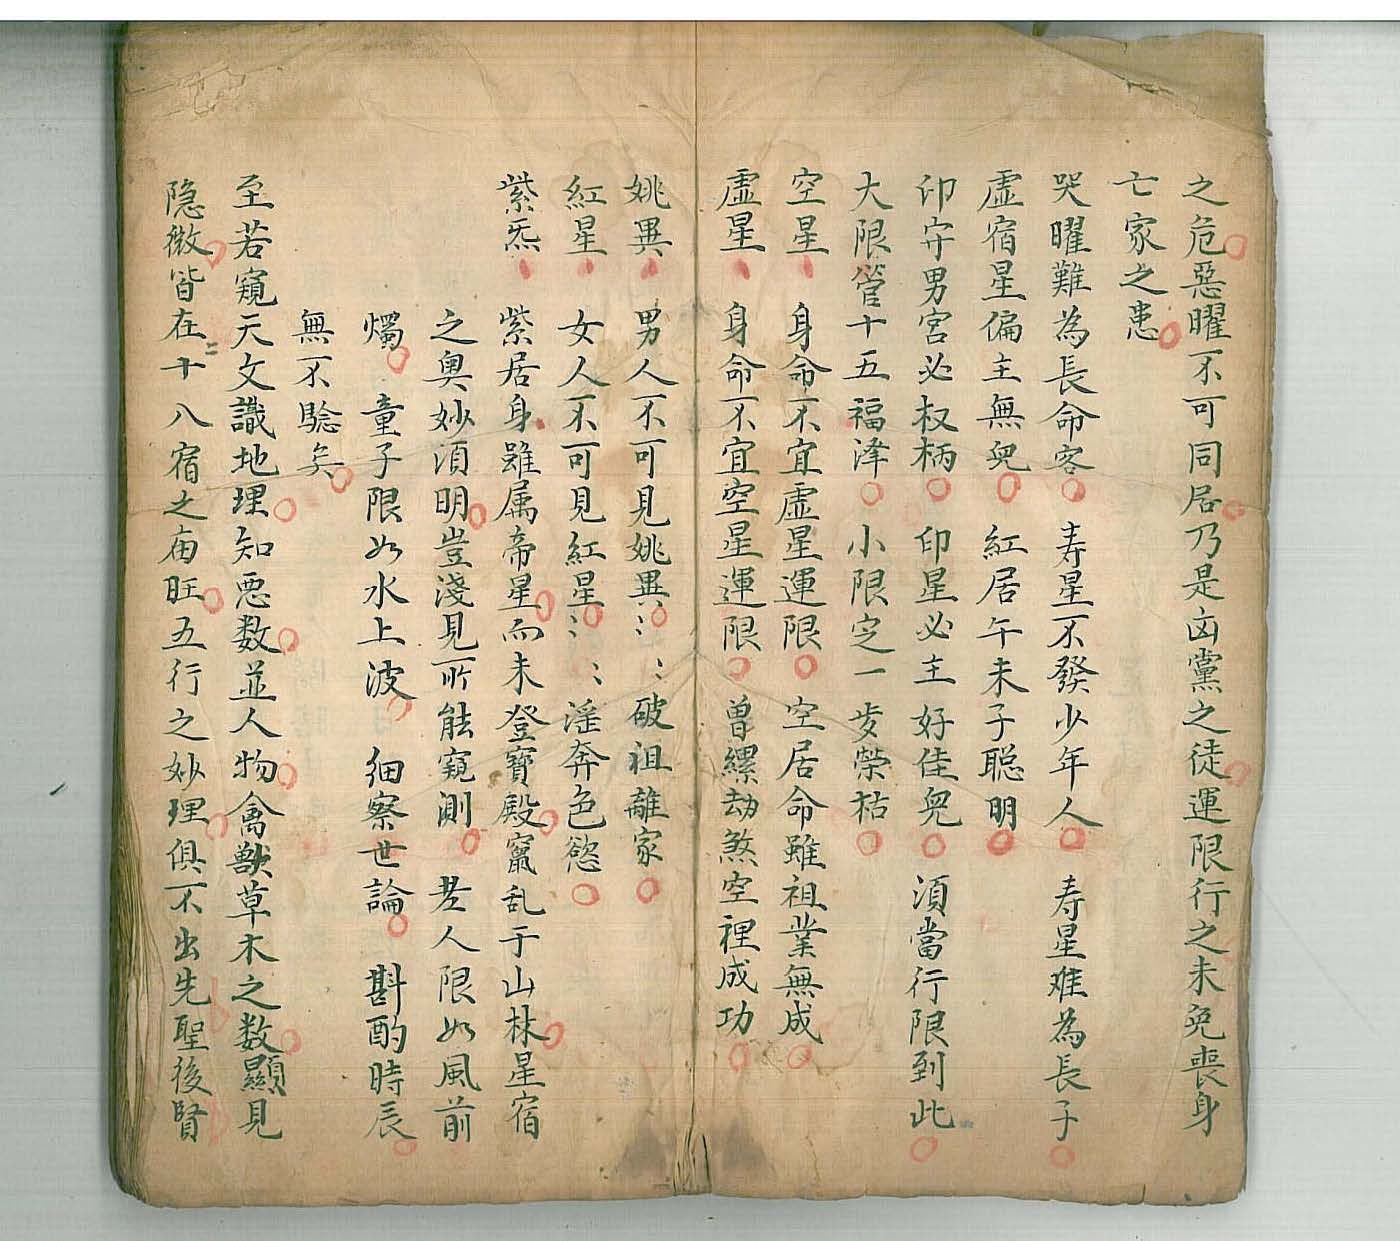 之危惡曜不可同居乃是凶黨之徒運限行之未免喪身
亡家之患
哭曜難為長命客 寿星不發少年人 寿星难為長子
虛宿星偏主無兒 紅居午未子聪明
印守男宮必权柄 印星必主好佳兒 須當行限到此
大限管十五福泽 小限定一岁榮枯
空星 身命不宜虛星運限 空居命雖祖業無成
虛星 身命不宜空星運限 曾縲劫煞空裡成功
姚異 男人不可見姚異〻〻破祖離家
紅星 女人不可見紅星〻〻滛奔色慾
紫炁 紫居身雖属帝星而未登寶殿竄乱于山林星宿
之奧妙須明豈淺見所能窺測 老人限如風前
燭 童子限如水上波 细察世論 斟酌時辰
無不騐矣
至若窺天文識地理知悪数並人物禽獸草木之数顯見
隐微皆在十八宿之庙旺五行之妙理俱不出先聖後賢